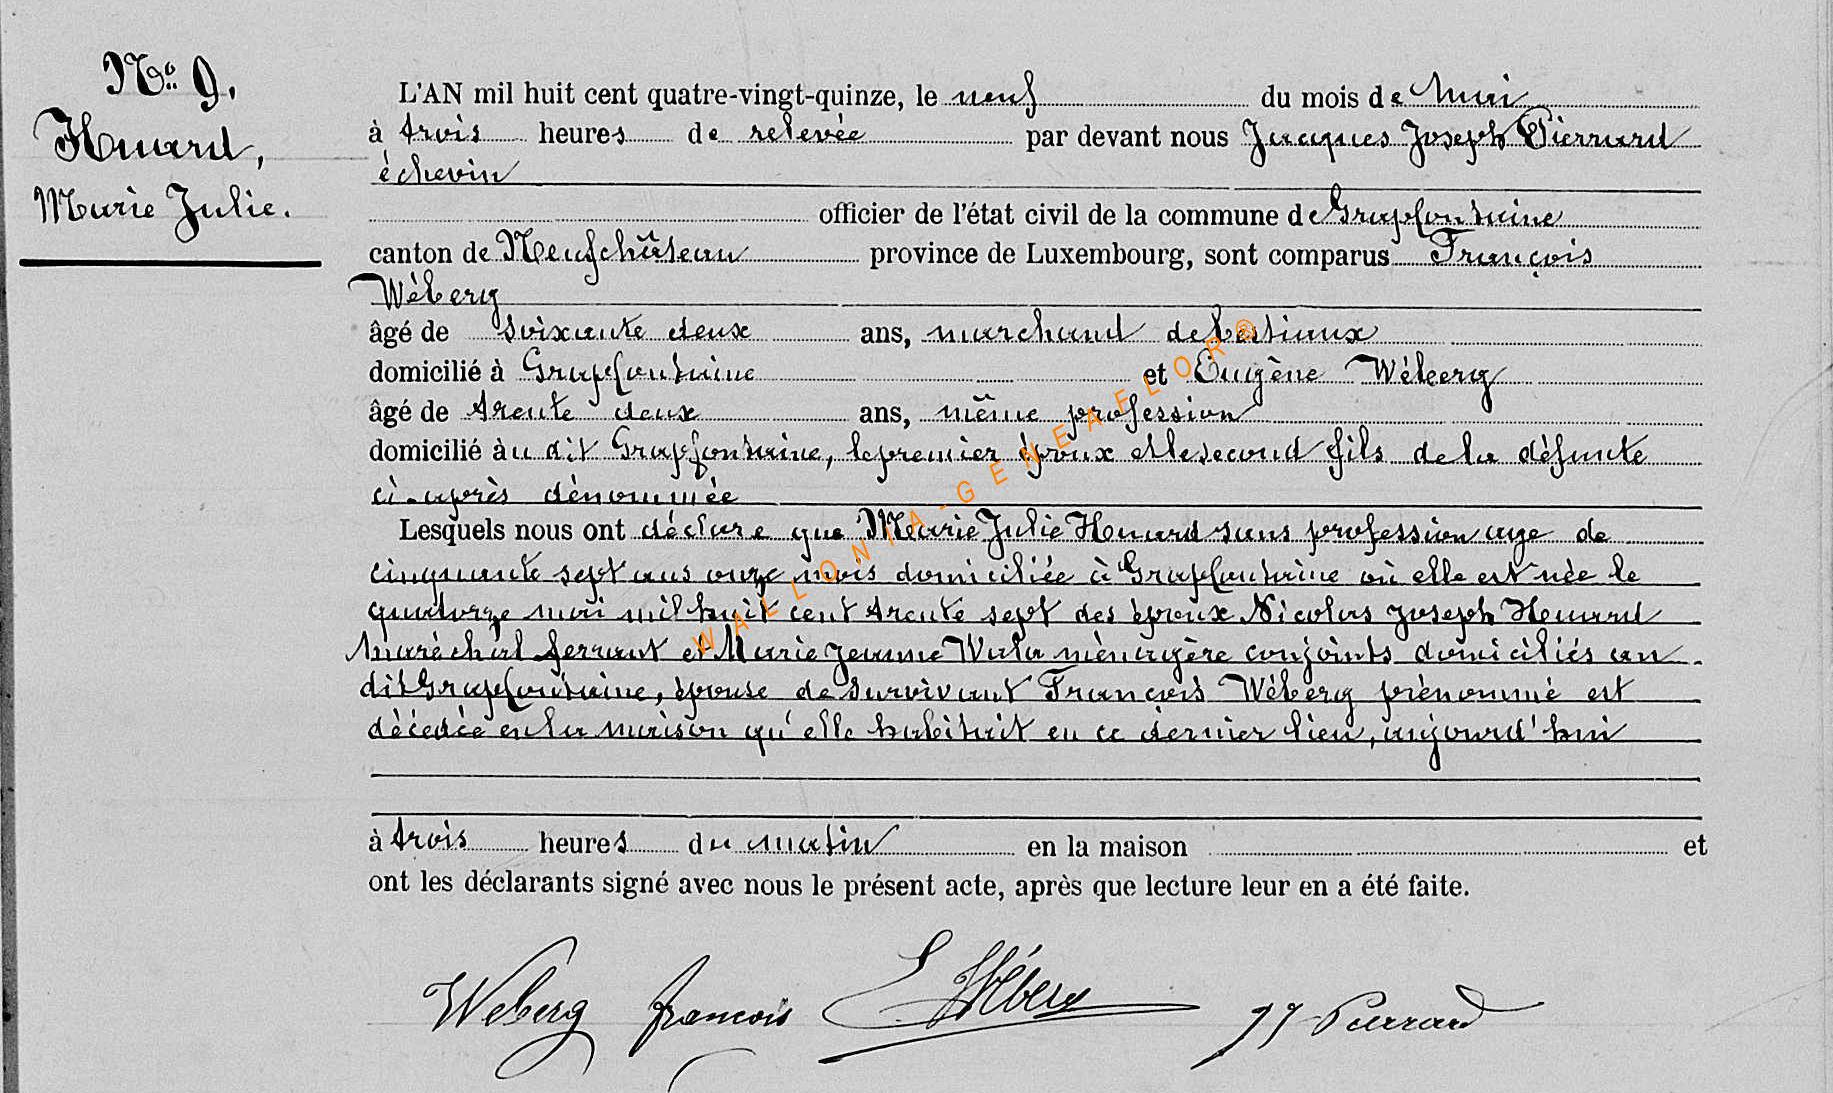 No. 9.
Henard,
Marie Julie.
L'AN mil huit cent quatre-vingt-quinze, le neuf du mois de Mai
à trois heures de relevée par devant nous Jacques Joseph Pierrard
échevin
officier de l'état civil de la commune de Grapfontaine
canton de Neufchâteau province de Luxembourg, sont comparus François
Wéberg
âgé de soixante deux ans, marchand de bestiaux
domicilié à Grapfontaine et Eugène Wéberg
âgé de trente deux ans, même profession
domicilié au dit Grapfontaine, le premier époux et le second fils de la défunte
ci-après dénommée
Lesquels nous ont déclaré que Marie Julie Henard sans profession age de
cinquante sept ans onze mois domiciliée à Grapfontaine où elle est née le
quatorze mai mil huit cent trente sept des époux Nicolas Joseph Henard
Maréchal ferrant et Marie Jeanne Wala ménagère conjoints domiciliés au
dit Grapfontaine, épouse de survivant François Wéberg prénommé est
décédée en la maison qu'elle habitait en ce dernier lieu, aujourd'hui
à trois heures du matin en la maison et
ont les déclarants signé avec nous le présent acte, après que lecture leur en a été faite.
Weberg françois E Wéberg JJ Pierrard
WALLONIA-GENEAFLOR®